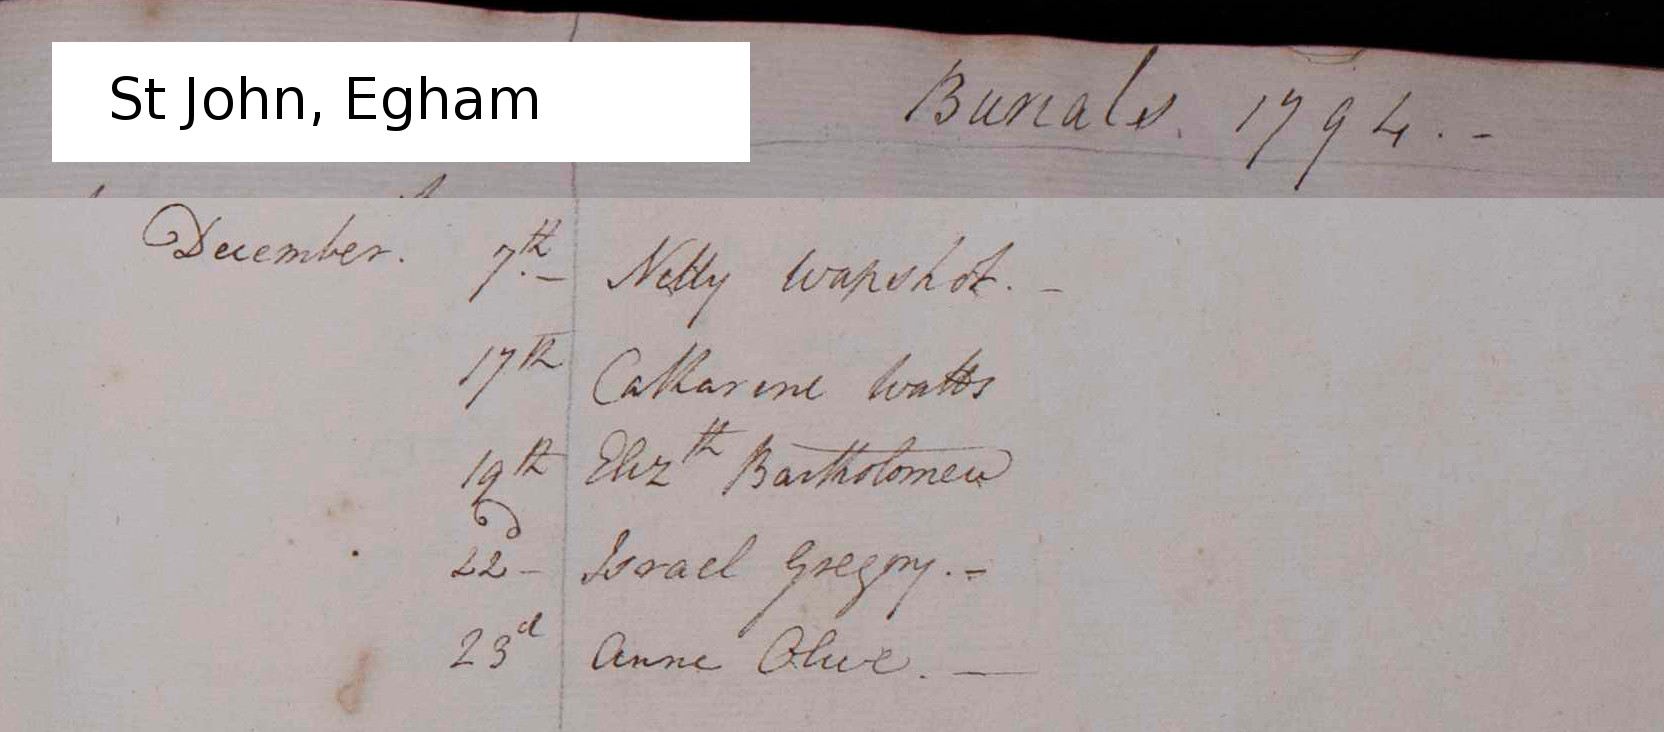 St John, Egham
Burials. 1794. -
December. 7th. - Netty Wapshot. -
17th Catharine Watts
19th Elizth Bartholomew
22d - Israel Gregory. -
23d Anne Olive. —